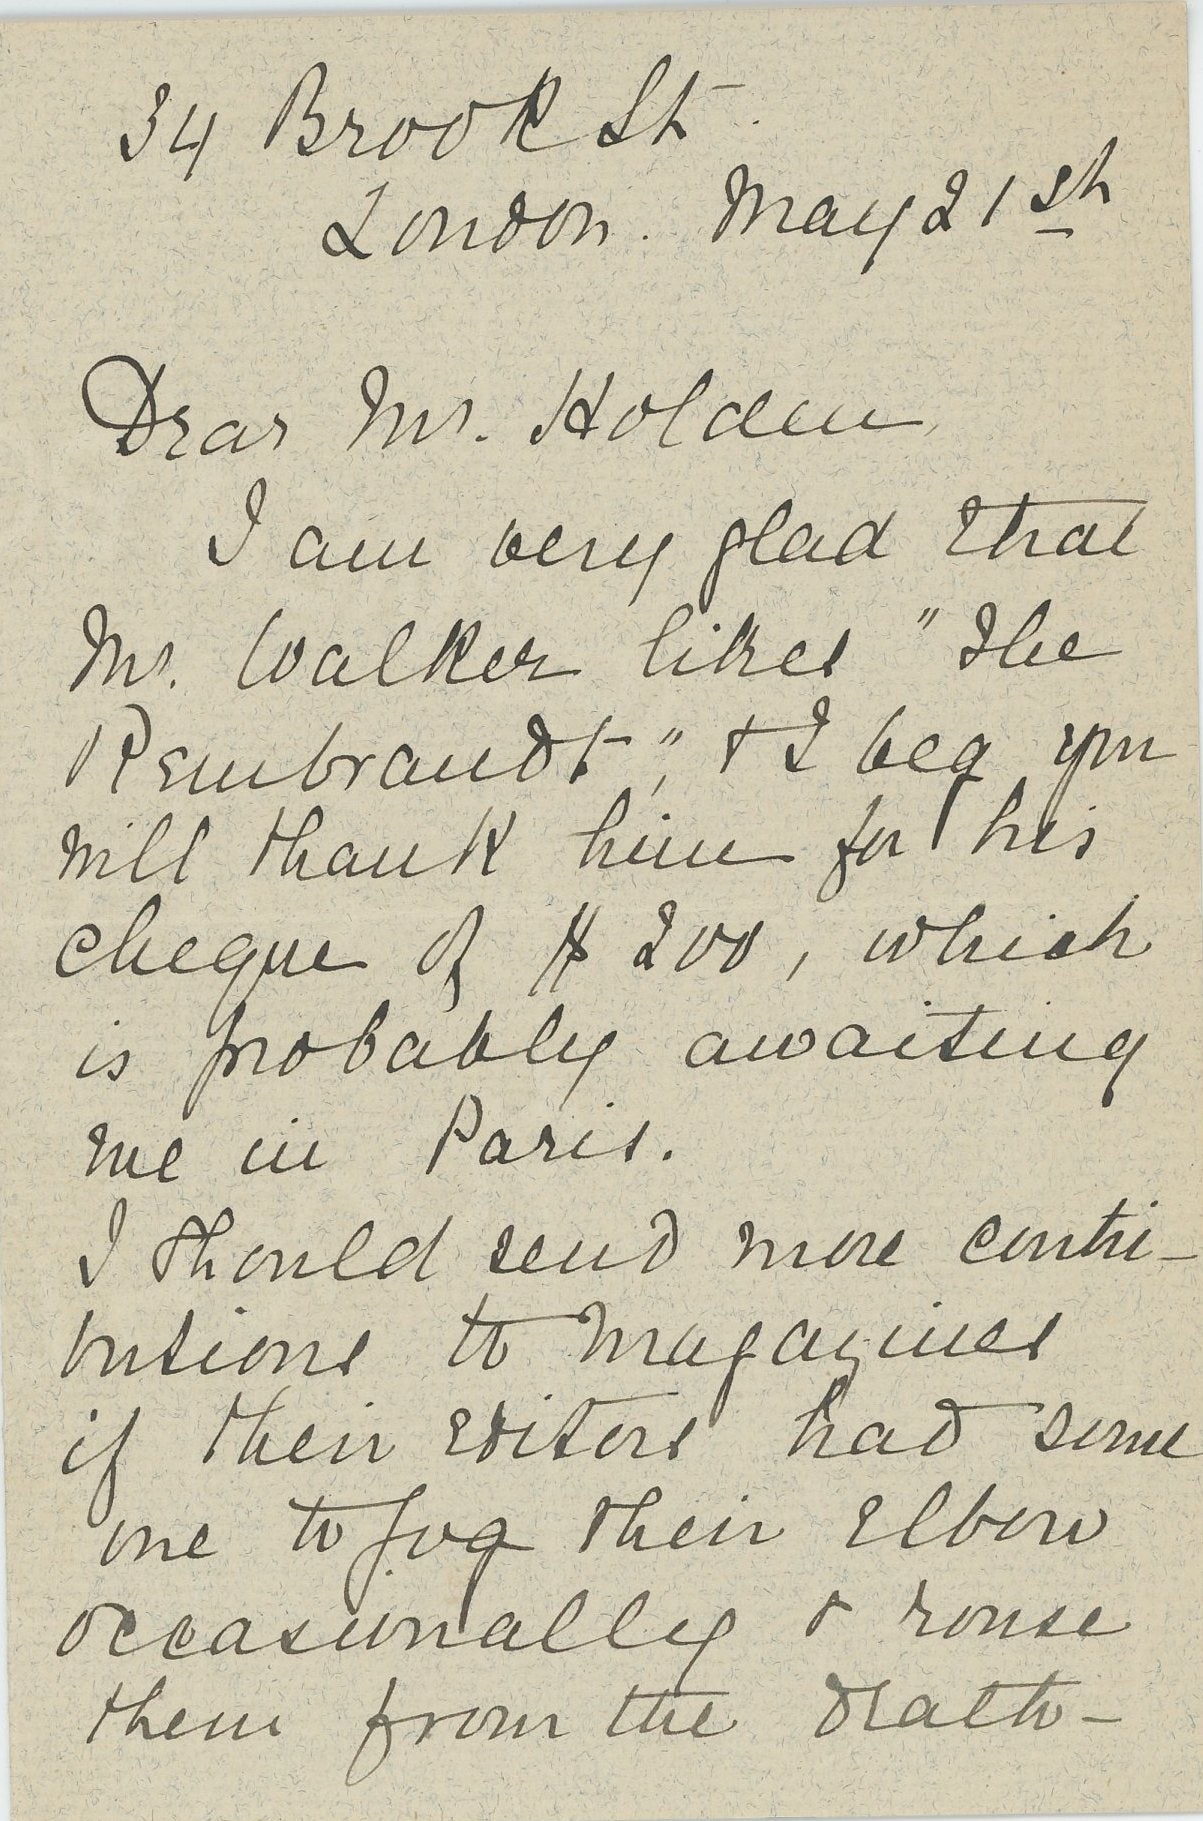 34 Brook St.
London. May 21st
Dear Mr. Holden,
I am very glad that
Mr. Walker likes "The
Rembrandt", & I beg you
will thank him for his
cheque of $200, which
is probably awaiting
me in Paris.
I should send more contri-
butions to magazines
if their editors had some
one to jog their elbow
occasionally & rouse
them from the death-